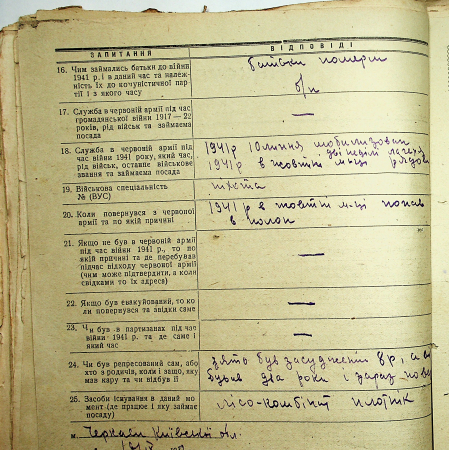 ЗАПИТАННЯ
ВІДПОВІДІ
16. Чим займались батьки до війни
1941 р. і в даний час та належ-
ність їх до комуністичної пар-
тії і з якого часу
батьки померли
б/п
17. Служба в червоній армії під час
громадянської війни 1917—22
років, рід військ та займаєма
посада
—
18. Служба в червоній армії під
час війни 1941 року, який час,
рід військ, останнє військове
звання та займаєма посада
1941 р 10 липня мобилизован
дві неділі
1941 р в жовтні м-ці рядов
19. Військова спеціальність
№ (ВУС)
піхота
20. Коли повернувся з червоної
армії та по якій причині
1941 р в жовтні м-ці попав
в полон
21. Якщо не був в червоній армії
під час війни 1941 р., то по
якій причині та де перебував
підчас відходу червоної армії
(чим може підтвердити, а коли
свідками то їх адреса)
—
22. Якщо був евакуйований, то ко-
ли повернувся та звідки саме
—
23. Чи був в партизанах під час
війни 1941 р. та де саме і
який час
—
24. Чи був репресований сам, або
хто з родичів, коли і защо, яку
мав кару та чи відбув її
зять був засуджений 8 р, а
був два роки і зараз
25. Засоби існування в даний мо-
мент (де працює і яку займає
посаду)
лісо-комбінат плотнік
м. Черкаси Київської обл.